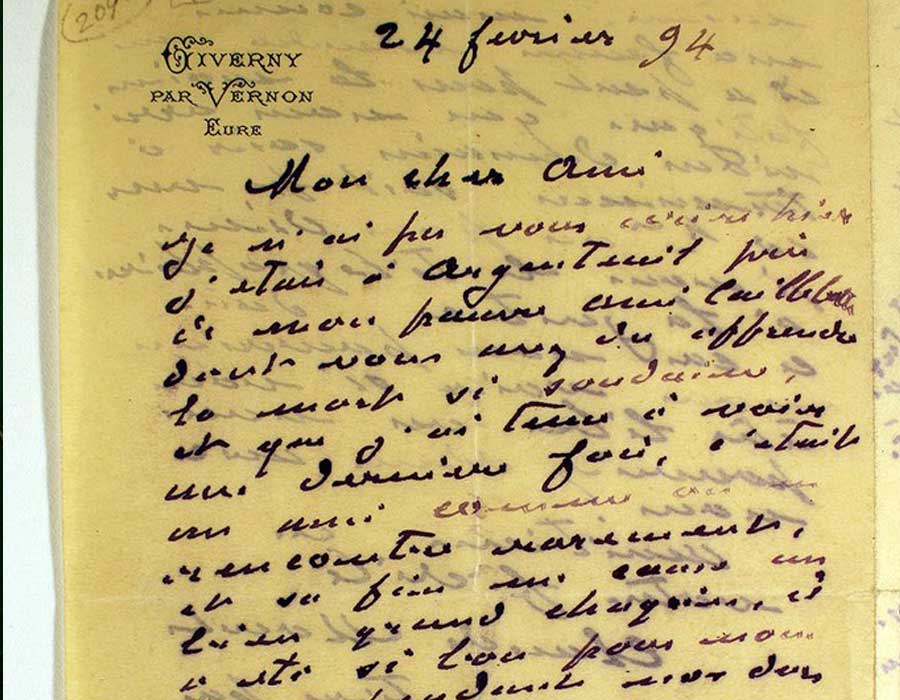 209
GIVERNY
PAR VERNON
EURE
24 fevrier 94
Mon cher Ami
Je n'ai pu vous écrire hier
j'etais à Argenteuil près
de mon pauvre ami Caillebotte
dont vous avez du apprendre
la mort si soudaine,
et que j'ai tenu à voir
une dernière fois, c'etait
un ami comme on en
rencontre rarement,
et sa fin me cause un
bien grand chagrin, il
a été si bon pour moi
pendant nos durs